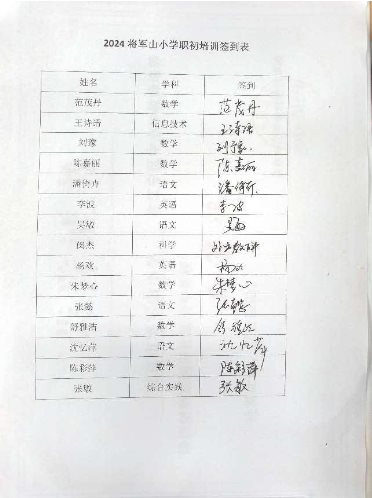 2024 将军山小学职初培训签到表
姓名 学科 签到
范茂丹 数学 范茂丹
王诗语 信息技术 王诗语
刘豫 数学 刘豫
陈嘉丽 数学 陈嘉丽
语文
李波 英语 李波
吴敏 语文 吴敏
侯杰 科学 外出教研
杨欢 英语 杨欢
朱梦心 数学 朱梦心
张懿 语文 张懿
舒雅洁 数学 舒雅洁
沈忆萍 语文 沈忆萍
陈彩萍 数学 陈彩萍
张敏 综合实践 张敏